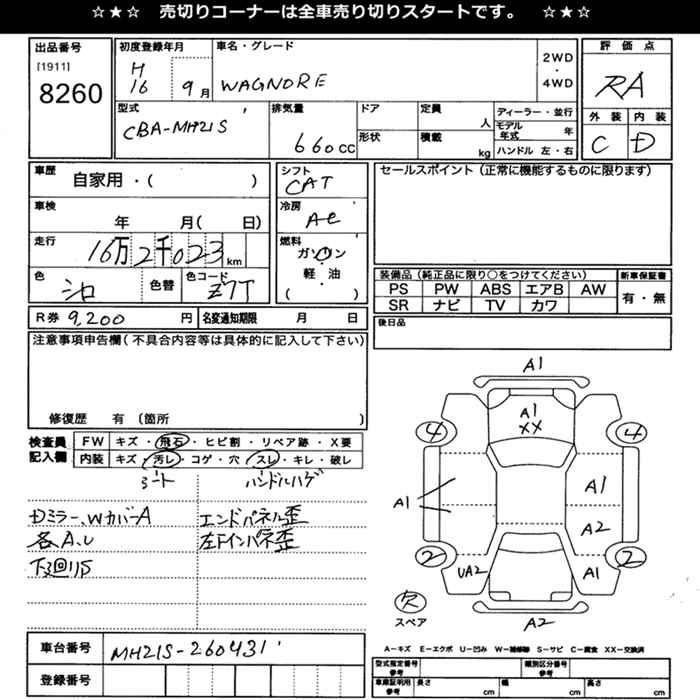 ☆★☆ 売切りコーナーは全車売り切りスタートです。 ☆★☆
出品番号
[1911]
8260
初度登録年月
H
16 9月
車名・グレード
WAGNORE
2WD
・
4WD
評価点
RA
型式
CBA-MH21S
排気量
660cc
ドア
形状
定員
人
積載
kg
ディーラー・並行
モデル年式 年
ハンドル 左・右
外装
C
内装
D
車歴
自家用・( )
シフト
CAT
車検
年 月( 日)
冷房
AC
走行
16万2千023km
燃料
ガソリン
軽・油
( )
色
シロ
色替
色コード
Z7T
セールスポイント (正常に機能するものに限ります)
装備品 (純正品に限り○をつけてください)
新車保証書
PS PW ABS エアB AW
有・無
SR ナビ TV カワ
R券 9,200 円
名変通知期限 月 日
後日品
注意事項申告欄 (不具合内容等は具体的に記入して下さい)
修復歴 有 (箇所 )
検査員
記入欄
FW キズ・飛石・ヒビ割・リペア跡・X要
内装 キズ・汚レ・コゲ・穴・スレ・キレ・破レ
シート ハンドルハゲ
Dミラー、WカバーA
エンドパネル歪
各A、U
左Fインパネ歪
下廻りS
A1
A1
XX
4 4
A1 A1
A2
2 2
UA2 A1
欠
スペア
A2
車台番号
MH21S-260431
登録番号
A−キズ E−エクボ U−凹み W−補修跡 S−サビ C−腐食 XX−交換済
型式指定番号
参考
類別区分番号
参考
車庫証明用
参考
長さ cm
幅 cm
高さ cm